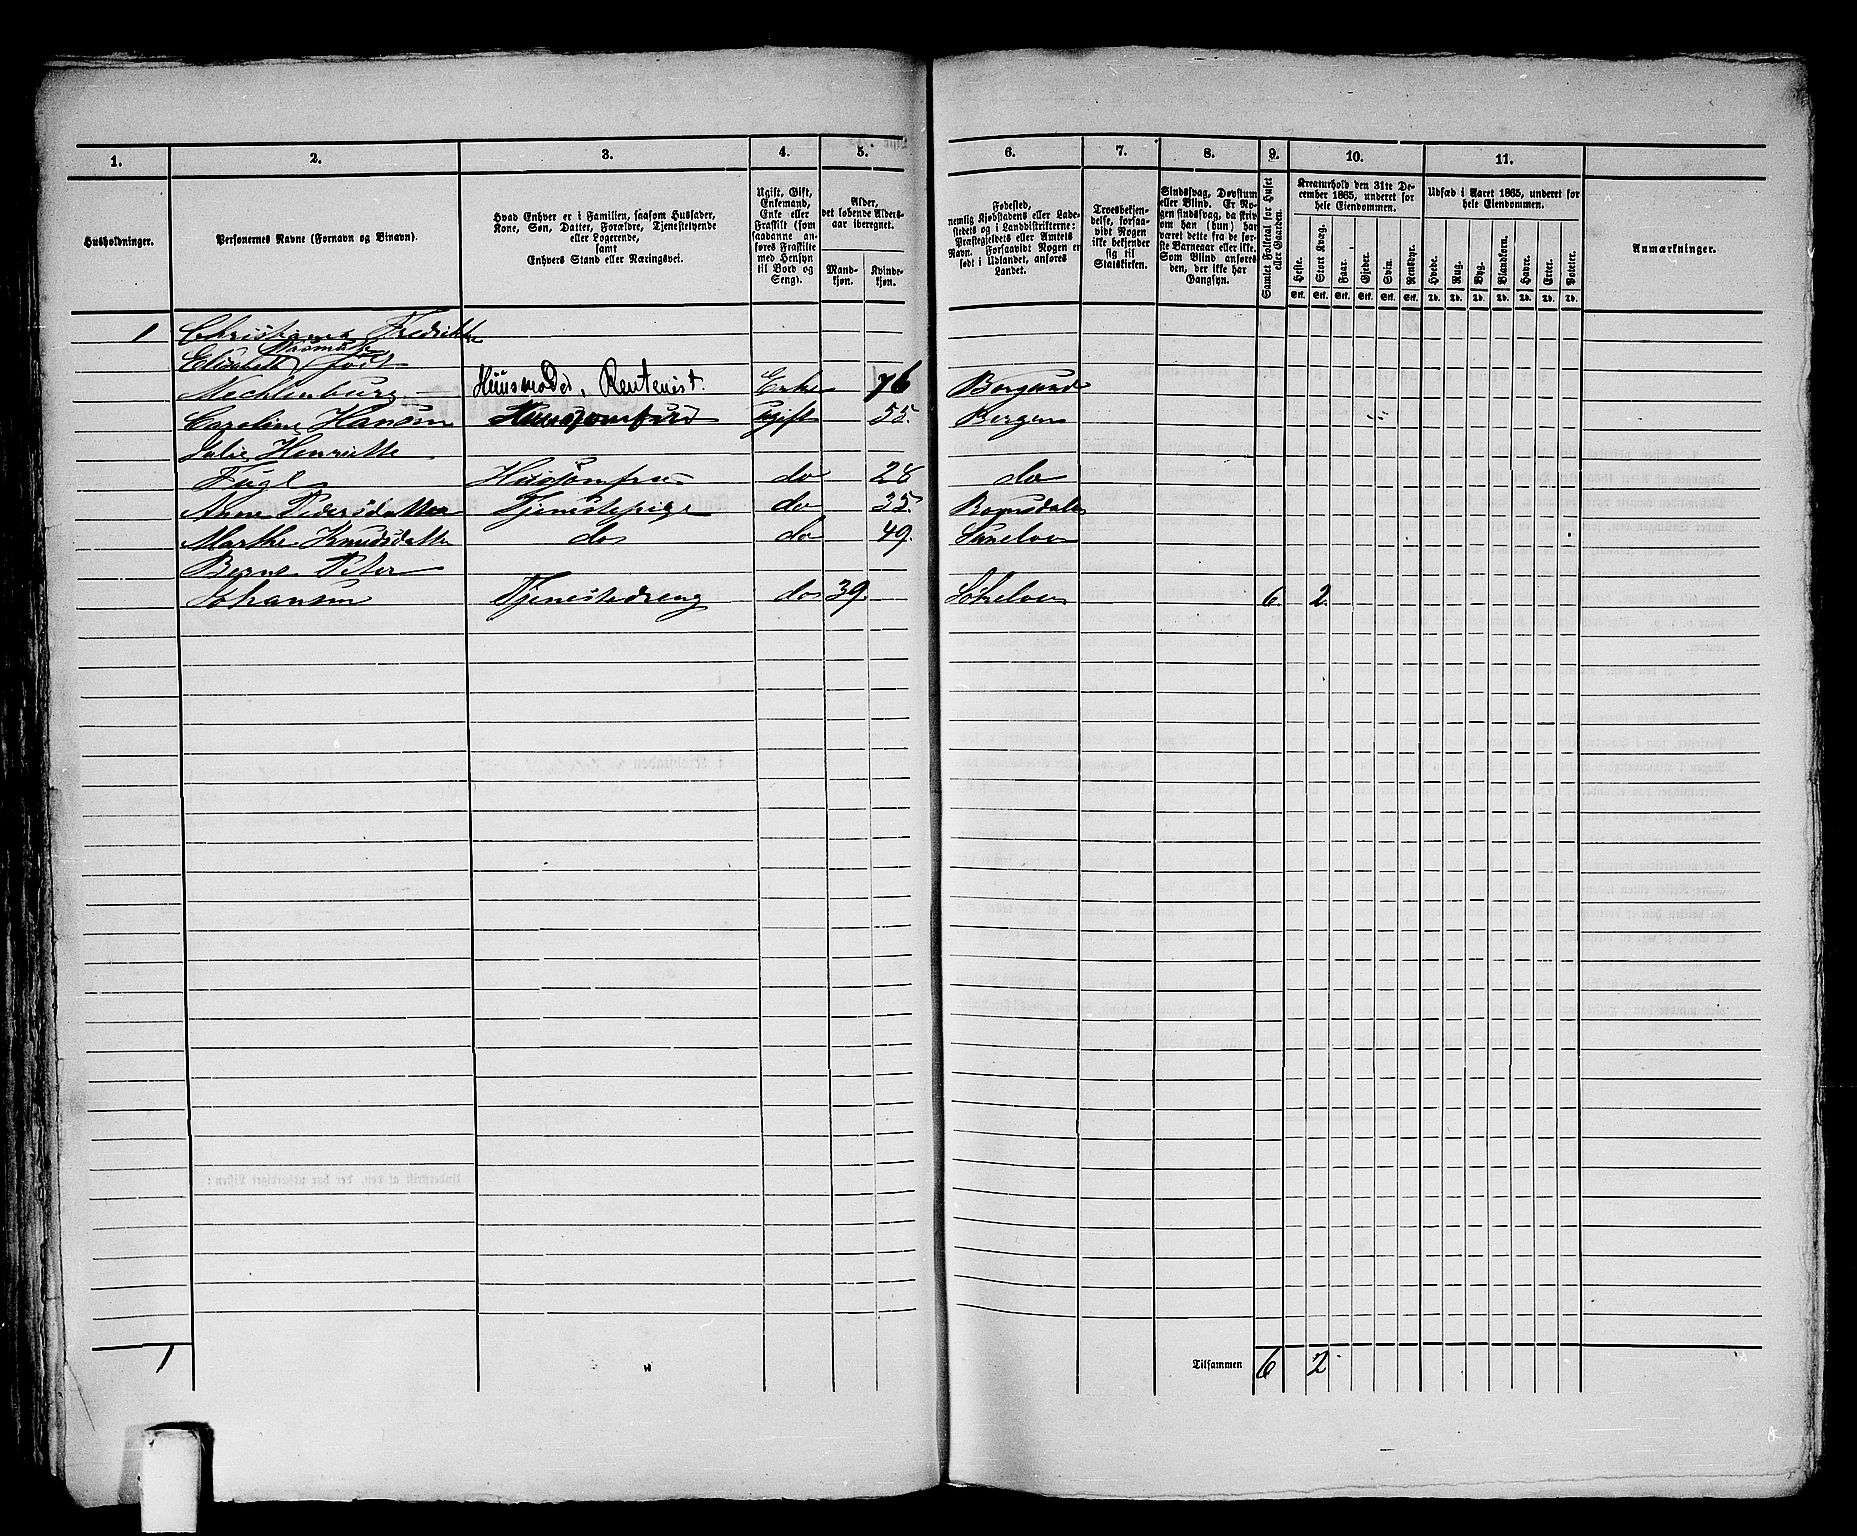 1. 2. 3. 4. 5. 6. 7. 8. 9. 10. 11.
Husholdninger.
Personernes Navne (Fornavn og Binavn).
Hvad Enhver er i Familien, saasom Husfader,
Kone, Søn, Datter, Forældre, Tjenestetyende
eller Logerende,
samt
Enhvers Stand eller Næringsvei.
Ugift, Gift,
Enkemand,
Enke eller
Fraskilt (som
saadanne an-
føres Fraskilte
med Hensyn
til Bord og
Seng).
Alder,
det løbende Alders-
aar iberegnet.
Mand-
kjøn.
Kvinde-
kjøn.
Fødested,
nemlig Kjøbstadens eller Lade-
stedets og i Landdistrikterne:
Præstegjeldets eller Amtets
Navn. Forsaavidt Nogen er
født i Udlandet, anføres
Landet.
Troesbekjen-
delse, forsaa-
vidt Nogen
ikke bekjender
sig til
Statskirken.
Sindssvag, Døvstum
eller Blind. Er No-
gen sindssvag, da skriv
om han (hun) har
været dette fra de før-
ste Barneaar eller ikke.
Som Blind anføres
den, der ikke har
Gangsyn.
Samlet Folketal for Huset
eller Gaarden.
Kreaturhold den 31te De-
cember 1865, underet for
hele Eiendommen.
Heste. Stort Kvæg. Faar. Gjeder. Svin. Rensdyr.
Stk. Stk. Stk. Stk. Stk. Stk.
Udsæd i Aaret 1865, underet for
hele Eiendommen.
Hvede. Rug. Byg. Blandkorn. Havre. Erter. Poteter.
Td. Td. Td. Td. Td. Td. Td.
Anmærkninger.
1 Christiane Fredrikke
Elisabeth født
Mechlenburg Huusmoder, Rentenist. Enke 76 Borgund
Caroline Hansen ugift 55. Bergen
Julie Henriette
Fugl Husjomfru do 28 do
Anne Pedersdatter Tjenestepige do 35. Romsdalen
Marthe Knudsdatter do do 49. Sunelven
Bernt Peter
Johansen Tjenestedreng do 39. Sökelven 6. 2
1 Tilsammen 6 2